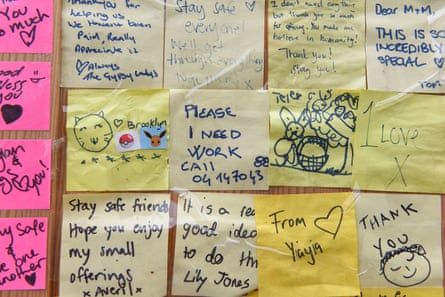 you
so much
Thankyou for
helping us
we haven't been
Paid, Really
Appreciate it
Always
the Gypsy Ladys
Stay safe
everyone!
We'll get
through everything
together
I don't need anything
but thank you so much
for
make me
believe in humanity!
Thank you!
Stay you!
Dear M+M,
THIS IS SO
INCREDIBLY
SPECIAL
Tom
you
Brooklyn
PLEASE
I NEED
WORK
CALL 88
04 147043
I Love
X
you!
Stay safe friends
Hope you enjoy
my small
offerings
x Averil x
It is a rea
good idea
to do th
Lily Jones
From
Yiayia
THANK
YOU
y Safe
& be
one
nother